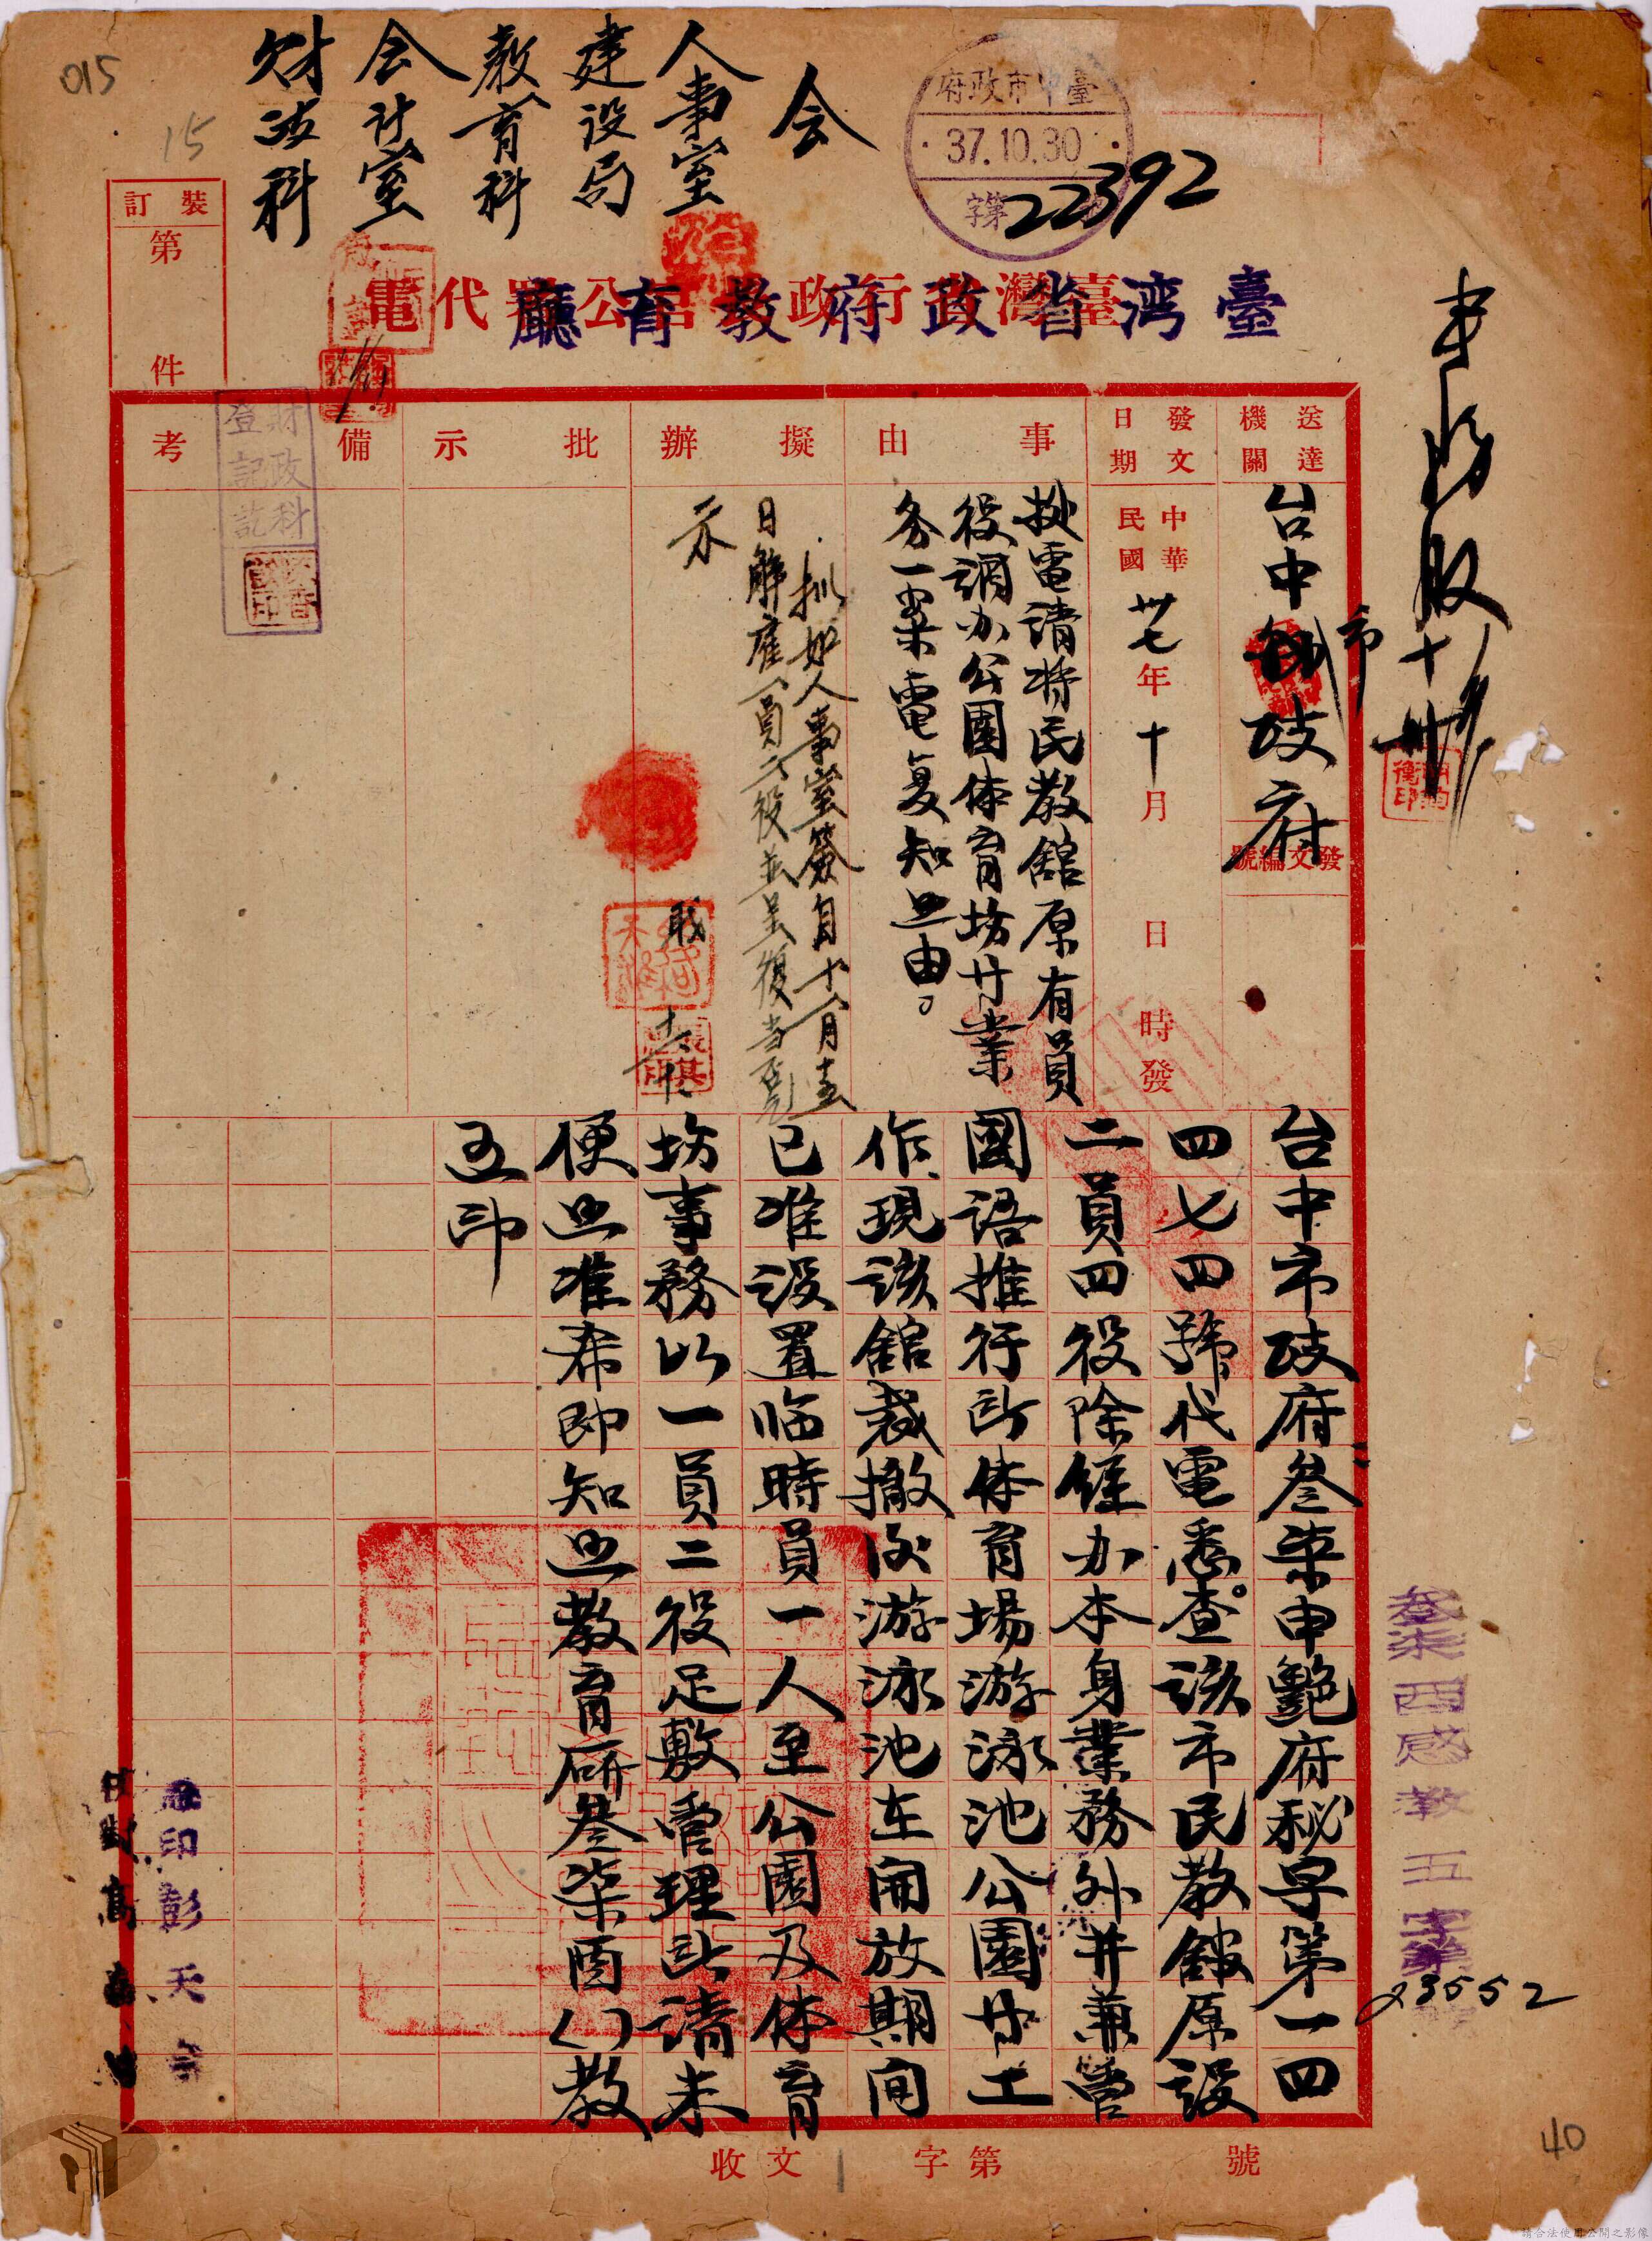 015
15
40
会
人事室
建设局
教育科
会计室
财政科
臺中市政府
37.10.30
字第22392
臺湾省政府教育廳
代電
裝訂
第
件
送達機關
台中市政府
發文編號
發文日期
中華民國卅七年十月 日 時發
事由
据電請將民教館原有員
役調办公園体育场廿業
务一案電复知照由。
擬辦
拟如人事室簽自十一月壹
日解雇一員二役並呈復当否
示
批示
備考
財政科
登記訖
台中市政府叁柒申艷府秘字第一四
四七四號代電悉。查該市民教館原設
二員四役除經办本身業務外并兼管
國語推行所体育場游泳池公園廿工
作、現該館裁撤後游泳池在開放期间
已准設置临時員一人至公園及体育
场事務以一員二役足敷管理所請未
便照准希即知照教育廳叁柒酉( )教
五印
叁柒酉感教五字第
23552
監印彭天
校對高
收文 字第 號
請合法使用公開之影像